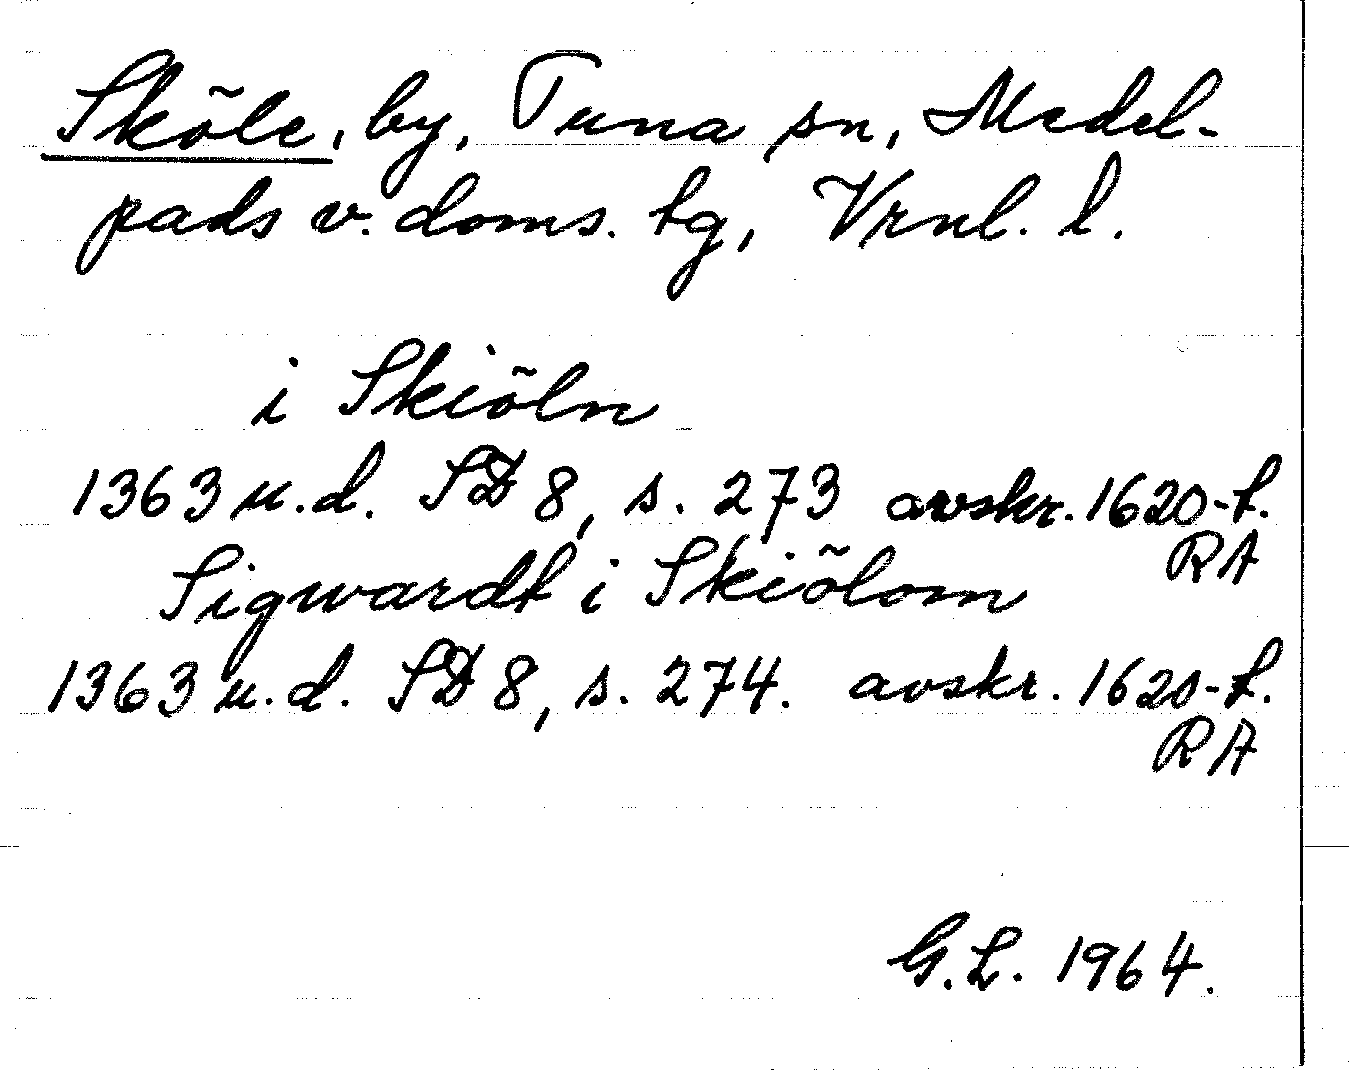 Sköle, by, Tuna sn, Medel-
pads v. doms. tg, Vrnl. l.
i Skiöln
1363 u.d. SD 8, s. 273 avskr. 1620-t.
RA
Sigwardt i Skiölom
1363 u.d. SD 8, s. 274. avskr. 1620-t.
RA
G.L. 1964.